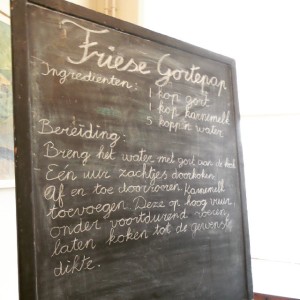 Friese Gortepap
Ingrediënten:
1 kop gort
1 kop karnemelk
5 koppen water
Bereiding:
Breng het water met gort aan de kook
Eén uur zachtjes doorkoken
Af en toe doorroeren. Karnemelk
toevoegen. Deze op hoog vuur,
onder voortdurend roeren,
laten koken tot de gewenste
dikte.